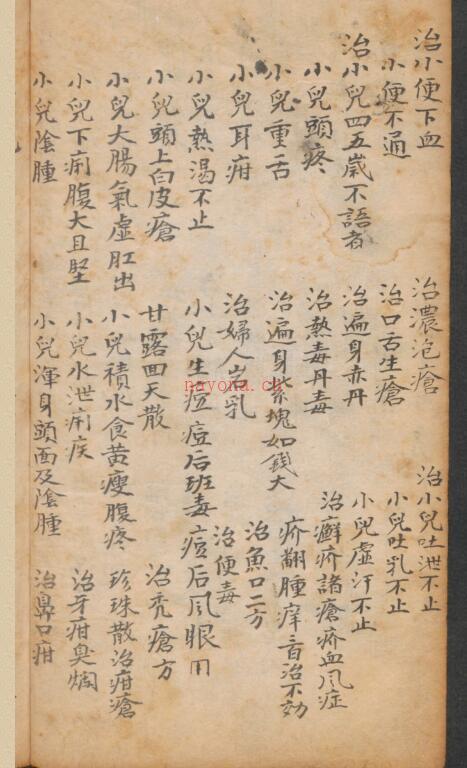 治小便下血 治濃泡瘡 治小兒吐泄不止
小便不通 治口舌生瘡 小兒吐乳不止
治小兒四五歲不語者 治遍身赤丹 小兒虛汗不止
小兒頭疼 治熱毒丹毒 治癬疥諸瘡疥血風症
小兒重舌 治遍身紫塊如錢大 疥翻腫痒音治不効
小兒耳疳 治婦人岩乳 治魚口二方
治便毒
小兒熱渴不止 小兒生痘痘后班毒 痘后風眼用
小兒頭上白皮瘡 甘露回天散 治禿瘡方
小兒大腸氣虛肛出 小兒積水食黃瘦腹疼 珍珠散治疳瘡
小兒下痢腹大且堅 小兒水泄痢疾 治牙疳臭爛
小兒陰腫 小兒渾身頭面及陰腫 治鼻口疳